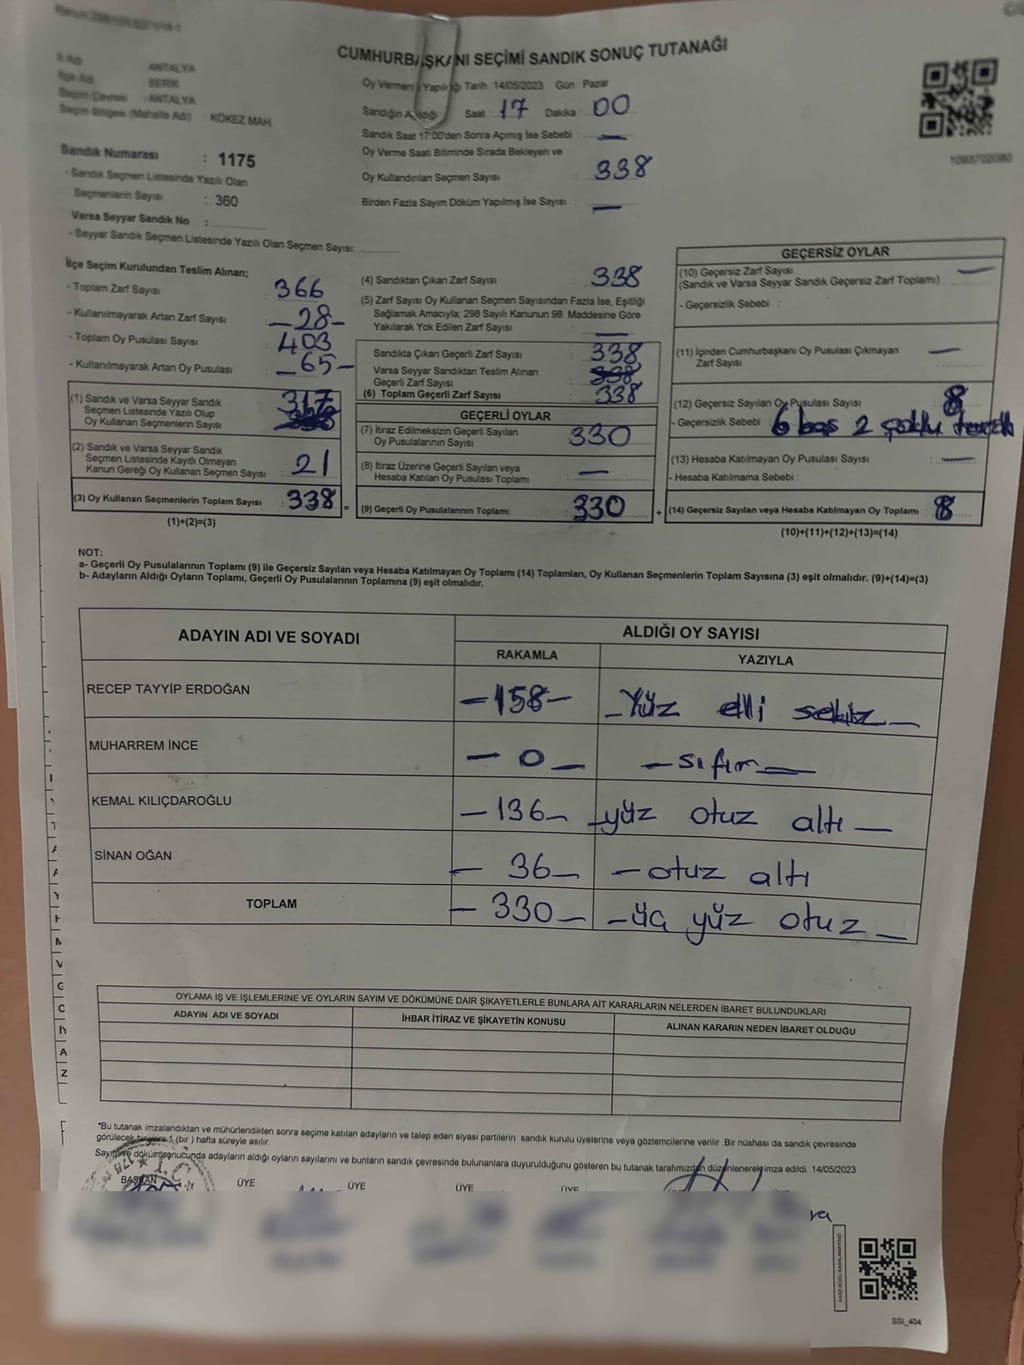 CUMHURBAŞKANI SEÇİMİ SANDIK SONUÇ TUTANAĞI
İl Adı : ANTALYA
İlçe Adı : SERİK
Seçim Çevresi : ANTALYA
Seçim Bölgesi (Mahalle Adı) : KÖKEZ MAH.
Sandık Numarası : 1175
- Sandık Seçmen Listesinde Yazılı Olan
Seçmenlerin Sayısı : 360
Varsa Seyyar Sandık No :
- Seyyar Sandık Seçmen Listesinde Yazılı Olan Seçmen Sayısı:
Oy Vermenin Yapıldığı Tarih :14/05/2023 Gün Pazar
Sandığın Açıldığı Saat : 17 Dakika 00
Sandık Saat 17:00'den Sonra Açımış İse Sebebi : —
Oy Verme Saati Bitiminde Sırada Bekleyen ve
Oy Kullandırılan Seçmen Sayısı : 338
Birden Fazla Sayım Döküm Yapılmış İse Sayısı : —
1093702080
İlçe Seçim Kurulundan Teslim Alınan;
- Toplam Zarf Sayısı : 366
- Kullanılmayarak Artan Zarf Sayısı : —28—
- Toplam Oy Pusulası Sayısı : 403
- Kullanılmayarak Artan Oy Pusulası : —65—
(1) Sandık ve Varsa Seyyar Sandık
Seçmen Listesinde Yazılı Olup
Oy Kullanan Seçmenlerin Sayısı : 317
(2) Sandık ve Varsa Seyyar Sandık
Seçmen Listesinde Kayıtlı Olmayan
Kanun Gereği Oy Kullanan Seçmen Sayısı : 21
(3) Oy Kullanan Seçmenlerin Toplam Sayısı : 338 =
(1)+(2)=(3)
(4) Sandıktan Çıkan Zarf Sayısı : 338
(5) Zarf Sayısı Oy Kullanan Seçmen Sayısından Fazla İse, Eşitliği
Sağlamak Amacıyla; 298 Sayılı Kanunun 98. Maddesine Göre
Yakılarak Yok Edilen Zarf Sayısı : —
Sandıkta Çıkan Geçerli Zarf Sayısı : 338
Varsa Seyyar Sandıktan Teslim Alınan
Geçerli Zarf Sayısı :
(6) Toplam Geçerli Zarf Sayısı : 338
GEÇERLİ OYLAR
(7) İtiraz Edilmeksizin Geçerli Sayılan
Oy Pusulalarının Sayısı : 330
(8) İtiraz Üzerine Geçerli Sayılan veya
Hesaba Katılan Oy Pusulası Toplamı : —
(9) Geçerli Oy Pusulalarının Toplamı : 330 +
GEÇERSİZ OYLAR
(10) Geçersiz Zarf Sayısı —
(Sandık ve Varsa Seyyar Sandık Geçersiz Zarf Toplamı) :
- Geçersizlik Sebebi :
(11) İçinden Cumhurbaşkanı Oy Pusulası Çıkmayan
Zarf Sayısı : —
(12) Geçersiz Sayılan Oy Pusulası Sayısı : 8
- Geçersizlik Sebebi : 6 boş 2 çoklu tercih
(13) Hesaba Katılmayan Oy Pusulası Sayısı : —
- Hesaba Katılmama Sebebi :
(14) Geçersiz Sayılan veya Hesaba Katılmayan Oy Toplamı : 8
(10)+(11)+(12)+(13)=(14)
NOT:
a- Geçerli Oy Pusulalarının Toplamı (9) ile Geçersiz Sayılan veya Hesaba Katılmayan Oy Toplamı (14) Toplamları, Oy Kullanan Seçmenlerin Toplam Sayısına (3) eşit olmalıdır. (9)+(14)=(3)
b- Adayların Aldığı Oyların Toplamı, Geçerli Oy Pusulalarının Toplamına (9) eşit olmalıdır.
ADAYIN ADI VE SOYADI ALDIĞI OY SAYISI
RAKAMLA YAZIYLA
RECEP TAYYİP ERDOĞAN —158— —Yüz elli sekiz—
MUHARREM İNCE — 0 — —sıfır—
KEMAL KILIÇDAROĞLU —136— —yüz otuz altı—
SİNAN OĞAN — 36 — —otuz altı
TOPLAM — 330 — —üç yüz otuz—
OYLAMA İŞ VE İŞLEMLERİNE VE OYLARIN SAYIM VE DÖKÜMÜNE DAİR ŞİKAYETLERLE BUNLARA AİT KARARLARIN NELERDEN İBARET BULUNDUKLARI
ADAYIN ADI VE SOYADI İHBAR İTİRAZ VE ŞİKAYETİN KONUSU ALINAN KARARIN NEDEN İBARET OLDUĞU
*Bu tutanak imzalandıktan ve mühürlendikten sonra seçime katılan adayların ve talep eden siyasi partilerin sandık kurulu üyelerine veya gözlemcilerine verilir .Bir nüshası da sandık çevresinde
görülecek bir yere 1 (bir ) hafta süreyle asılır.
Sayım ve döküm sonucunda adayların aldığı oyların sayılarını ve bunların sandık çevresinde bulunanlara duyurulduğunu gösteren bu tutanak tarafımızdan düzenlenerek imza edildi. 14/05/2023
BAŞKAN ÜYE ÜYE ÜYE ÜYE
SSI_404